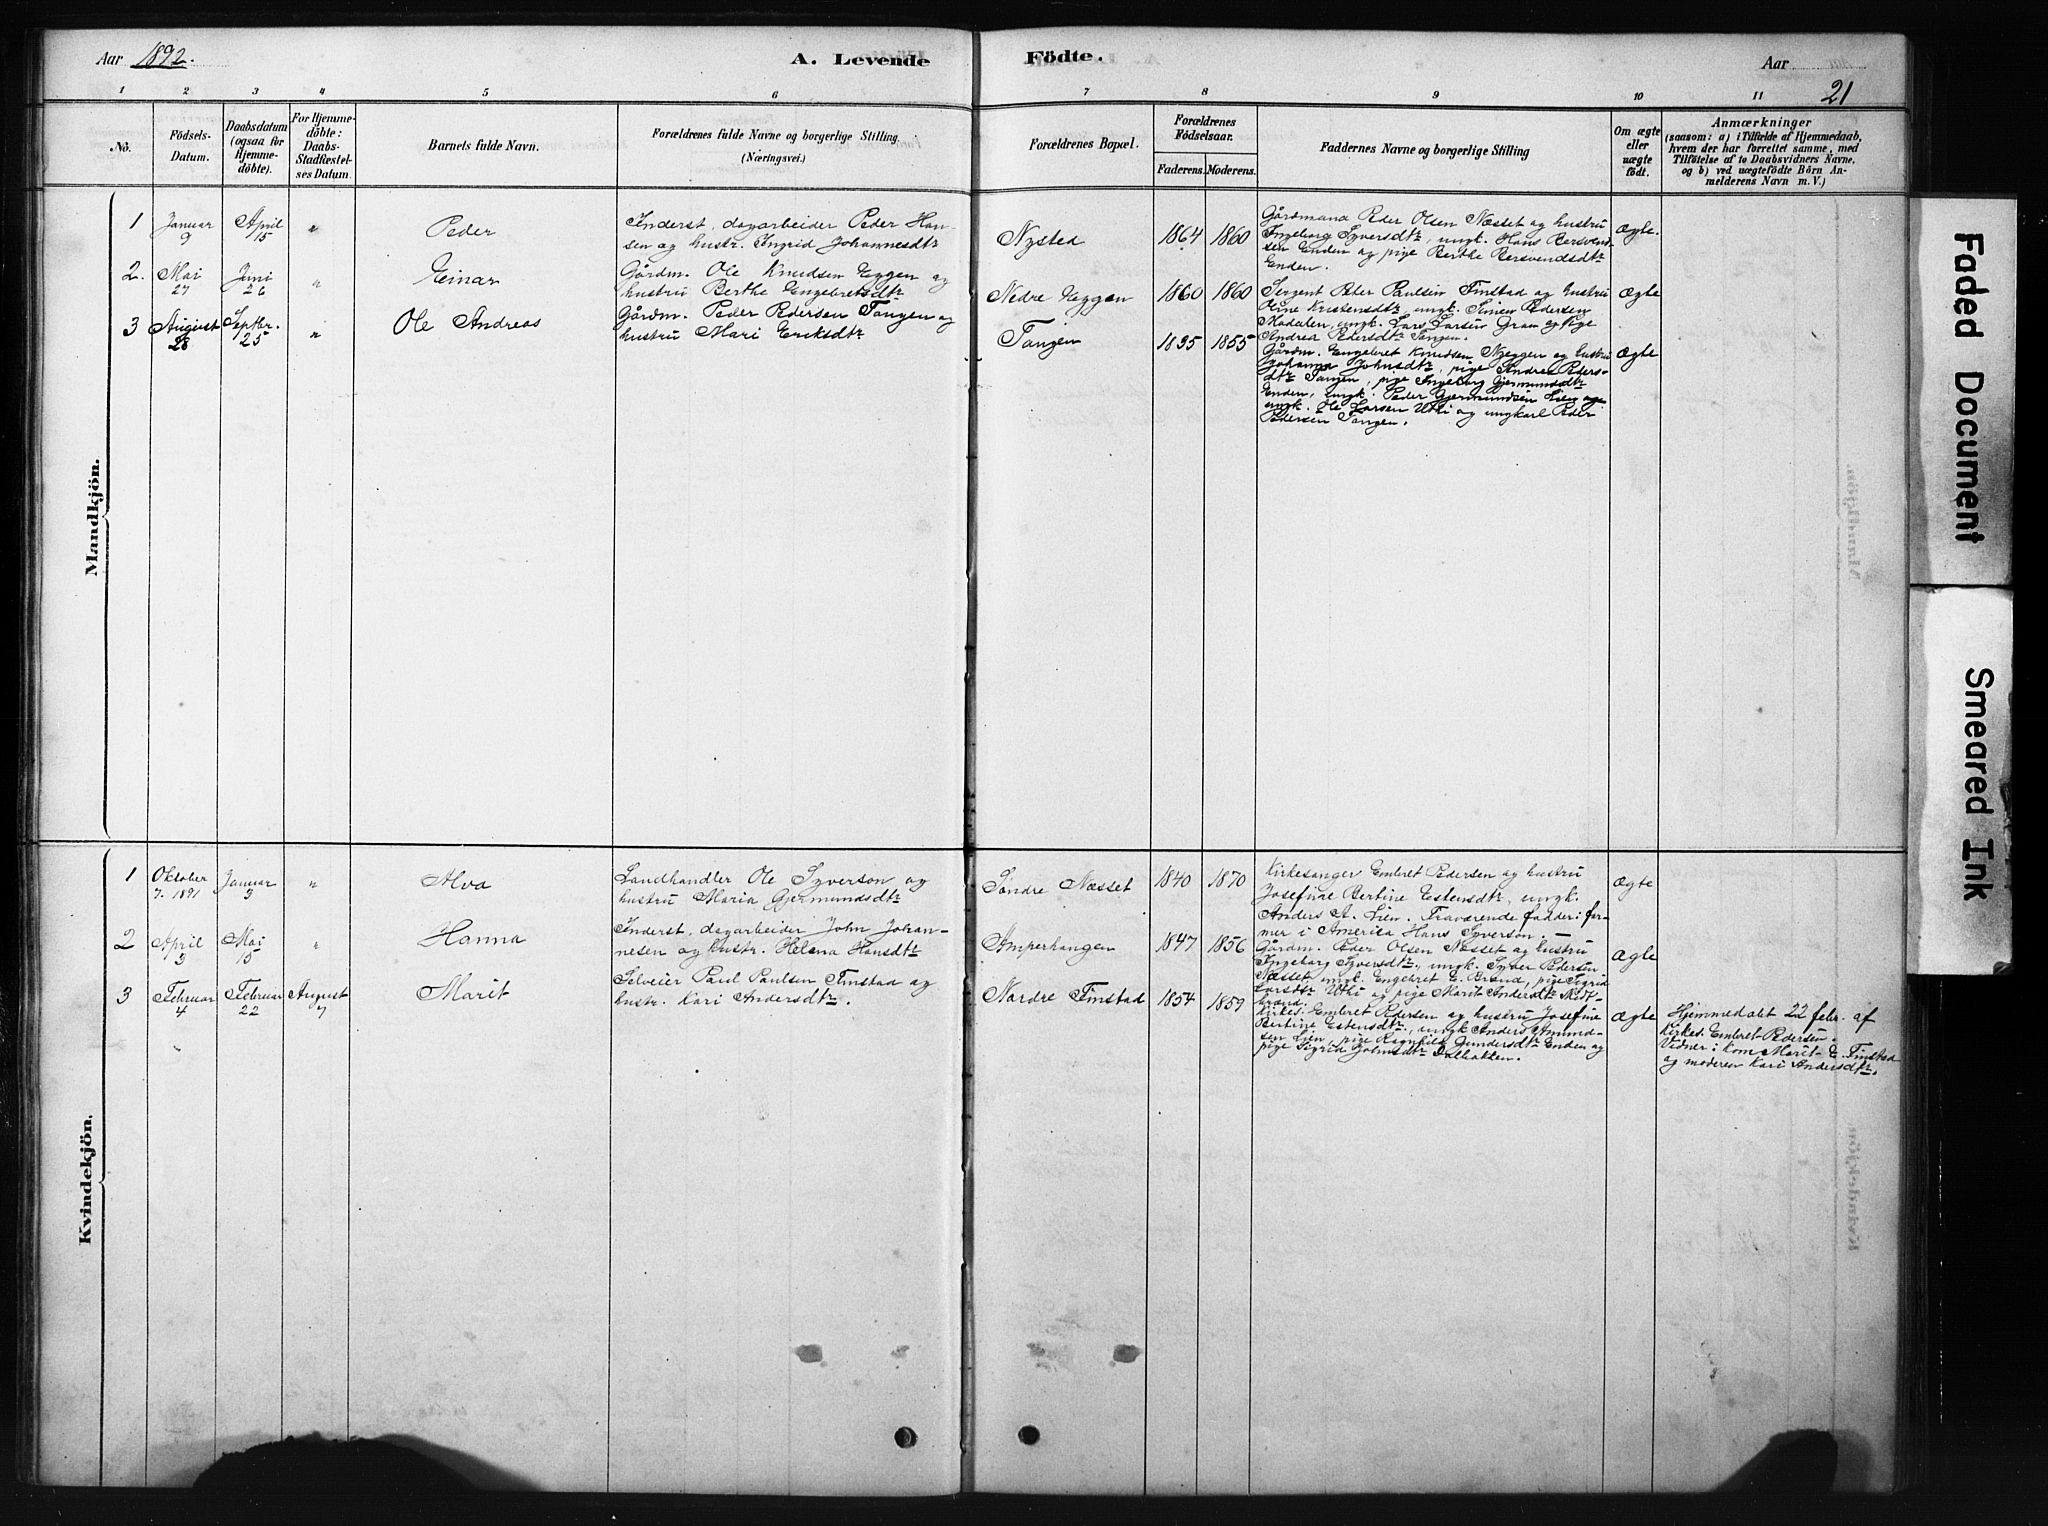 Aar 1892.
A. Levende
Födte.
Aar
21
1 2 3 4 5 6 7 8 9 10 11
No.
Födsels-
Datum.
Daabsdatum
(ogsaa for
Hjemme-
döbte).
For Hjemme-
döbte:
Daabs-
Stadfæstel-
ses Datum.
Barnets fulde Navn.
Forældrenes fulde Navne og borgerlige Stilling.
(Næringsvei.)
Forældrenes Bopæl.
Forældrenes
Födselsaar.
Faderens. Moderens.
Faddernes Navne og borgerlige Stilling
Om ægte
eller
uægte
födt.
Anmærkninger
(saasom: a) i Tilfælde af Hjemmedaab,
hvem der har forrettet samme, med
Tilföielse af to Daabsvidners Navne,
og b) ved uægtefödte Börn An-
melderens Navn m. V.)
Mandkjön.
1
Januar
9
April
15
"
Peder
Inderst, dagarbeider Peder Han-
sen og hustr. Ingrid Johannesdtr
Nysted
1864 1860
Gårdmand Peder Olsen Næsset og hustru
Ingeborg Syversdtr, ungk. Hans Bersvend-
sen Enden og pige Berthe Bersvendsdtr
Enden.
Ægte.
2.
Mai
27
Juni
26
"
Einar
Gårdm. Ole Knudsen Eggen og
hustru Berthe Engebretsdtr
Nedre Eggen
1860 1860
Sergent Peder Paulsen Finstad og hustru
Oline Kristensdtr, ungk. Simen Pedersen
Modalen, ungk. Lars Larsen Gram og Pige
Andrea Pedersdtr Tangen.
Ægte
3
August
28
Septbr.
25
"
Ole Andreas
Gårdm. Peder Pedersen Tangen og
hustru Mari Eriksdtr
Tangen
1835 1855
Gårdm. Engebret Knudsen Nyeggen og hustru
Johanna Johnsdtr, pige Andrea Peders-
dtr Tangen, pige Ingeborg Gjermundsdtr
Enden, ungk. Peder Gjermundsen Lien og
ungk. Ole Larsen Uthi og ungkarl Peder
Pedersen Tangen.
Ægte
Kvindekjön.
1
Oktober
7. 1891
Januar
3
"
Alva
Landhandler Ole Syverson og
hustru Maria Gjermundsdtr
Søndre Næsset
1840 1870
Kirkesanger Embret Pedersen og hustru
Josefine Bertine Estensdtr, ungk.
Anders A. Lien. Fraværende fadder: far-
mer i Amerika Hans Syverson. —
Ægte
2
April
3
Mai
15
"
Hanna
Inderst, dagarbeider John Johan-
nesen og hustr. Helena Hansdtr
Amperhangen
1847 1856
Gårdm. Peder Olsen Næsset og hustru
Ingeborg Syversdtr, ungk. Syver Pedersen
Næsset, ungk. Engebret E. Brand, pige Sigrid
Larsdtr Uthi og pige Marit Andersdtr
brand.
Ægte
3
Februar
4
Februar
22
August
7
Marit
Selveier Paul Paulsen Finstad og
hustr. Kari Andersdtr.
Nordre Finstad
1854 1859
Kirkes. Embret Pedersen og hustru Josefine
Bertine Estensdtr, ungk Anders Amund-
sen Lien, pige Ragnhild Gundersdtr Enden og
pige Sigrid Johnsdtr Dalbakken.
Ægte
Hjemmedøbt 22 febr. af
kirkes. Embret Pedersen.
Vidner: kom Marit E. Finstad
og moderen Kari Andersdtr.
Faded Document
Smeared Ink